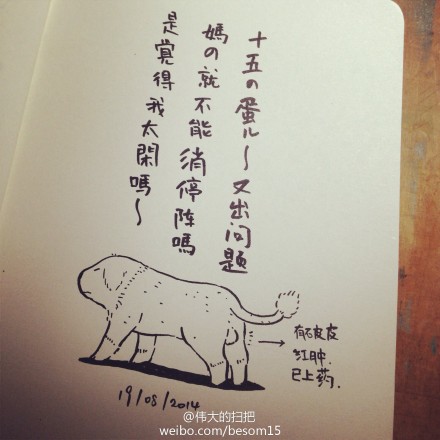 十五の蛋儿～又出问题
媽の就不能消停阵嗎
是覺得我太閑嗎～
有破皮
红肿.
已上药.
19/08/2014
@伟大的扫把
weibo.com/besom15